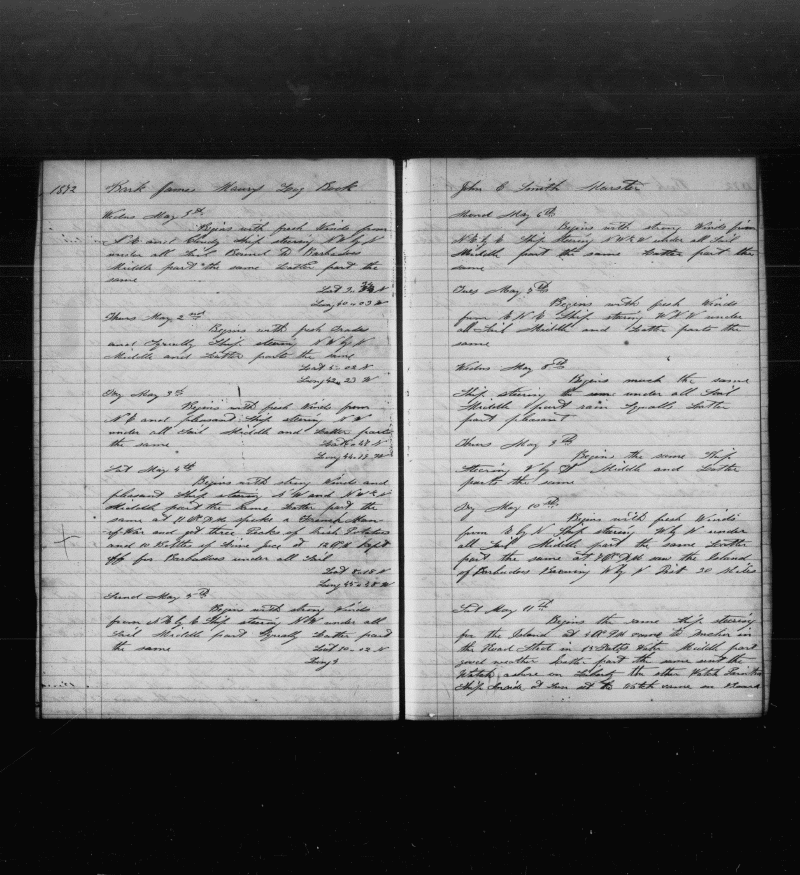 1872 Bark James Maury Log Book
Wedns May 1st
Begins with fresh Winds from
S E and Cloudy Ship steering N W by N
under all Sail Bound to Barbadoes
Middle part the same Latter part the
same
Lat 3 N
Long 40-03 W
Thurs May 2nd
Begins with fresh Trades
and Squally Ship steering N W by N
Middle and Latter parts the same
Latt 5-02 N
Long 42-23 W
Fry May 3d
Begins with fresh Winds from
N E and pleasant Ship stering N W
under all Sail Middle and Latter parts
the same Latt 27 N
Long 44 W
Sat May 4th
Begins with strong Winds and
pleasant Ship steering N W and N W
Middle part the same Latter part the
same at 11 PM spoke a French Man
of War and got three Sacks of Irish Potatoes
and 10 Bottles of Lime Juce at 12 kept
off for Barbadoes under all Sail
Latt 8-18 N
Long 45-28 W
Sund May 5th
Begins with strong Winds
from N E by E Ship steering N W under all
Sail Middle part Squally Latter part
the same Latt 10-02 N
Long
John C Smith Marster
Mond May 6th
Begins with strong Winds from
N E by E Ship stering N W & W under all Sail
Middle part the same Latter part the
same
Tues May 7th
Begins with fresh Winds
from E N E Ship stering W N W under
all Sail Middle and Latter parts the
same
Wedns May 8th
Begins much the same
Ship steering the same under all Sail
Middle part rain Squalls Latter
part pleasant
Thurs May 9th
Begins the same Ship
Steering W by Middle and Latter
parts the same
Fry May 10th
Begins with fresh Winds
from E by N Ship stering W by N under
all Sail Middle part the same Latter
part the same at PM saw the Island
of Barbadoes Bearing W by N Dist 30 Miles
Sat May 11th
Begins the same Ship steering
for the Island at PM came to Anchor in
the Road Sted in 13 Fathoms Water Middle part
good weather Latter part the same sent the
Watch ashore on Liberty the other Watch Painting
Ship Inside at Sun set the Watch came on Board